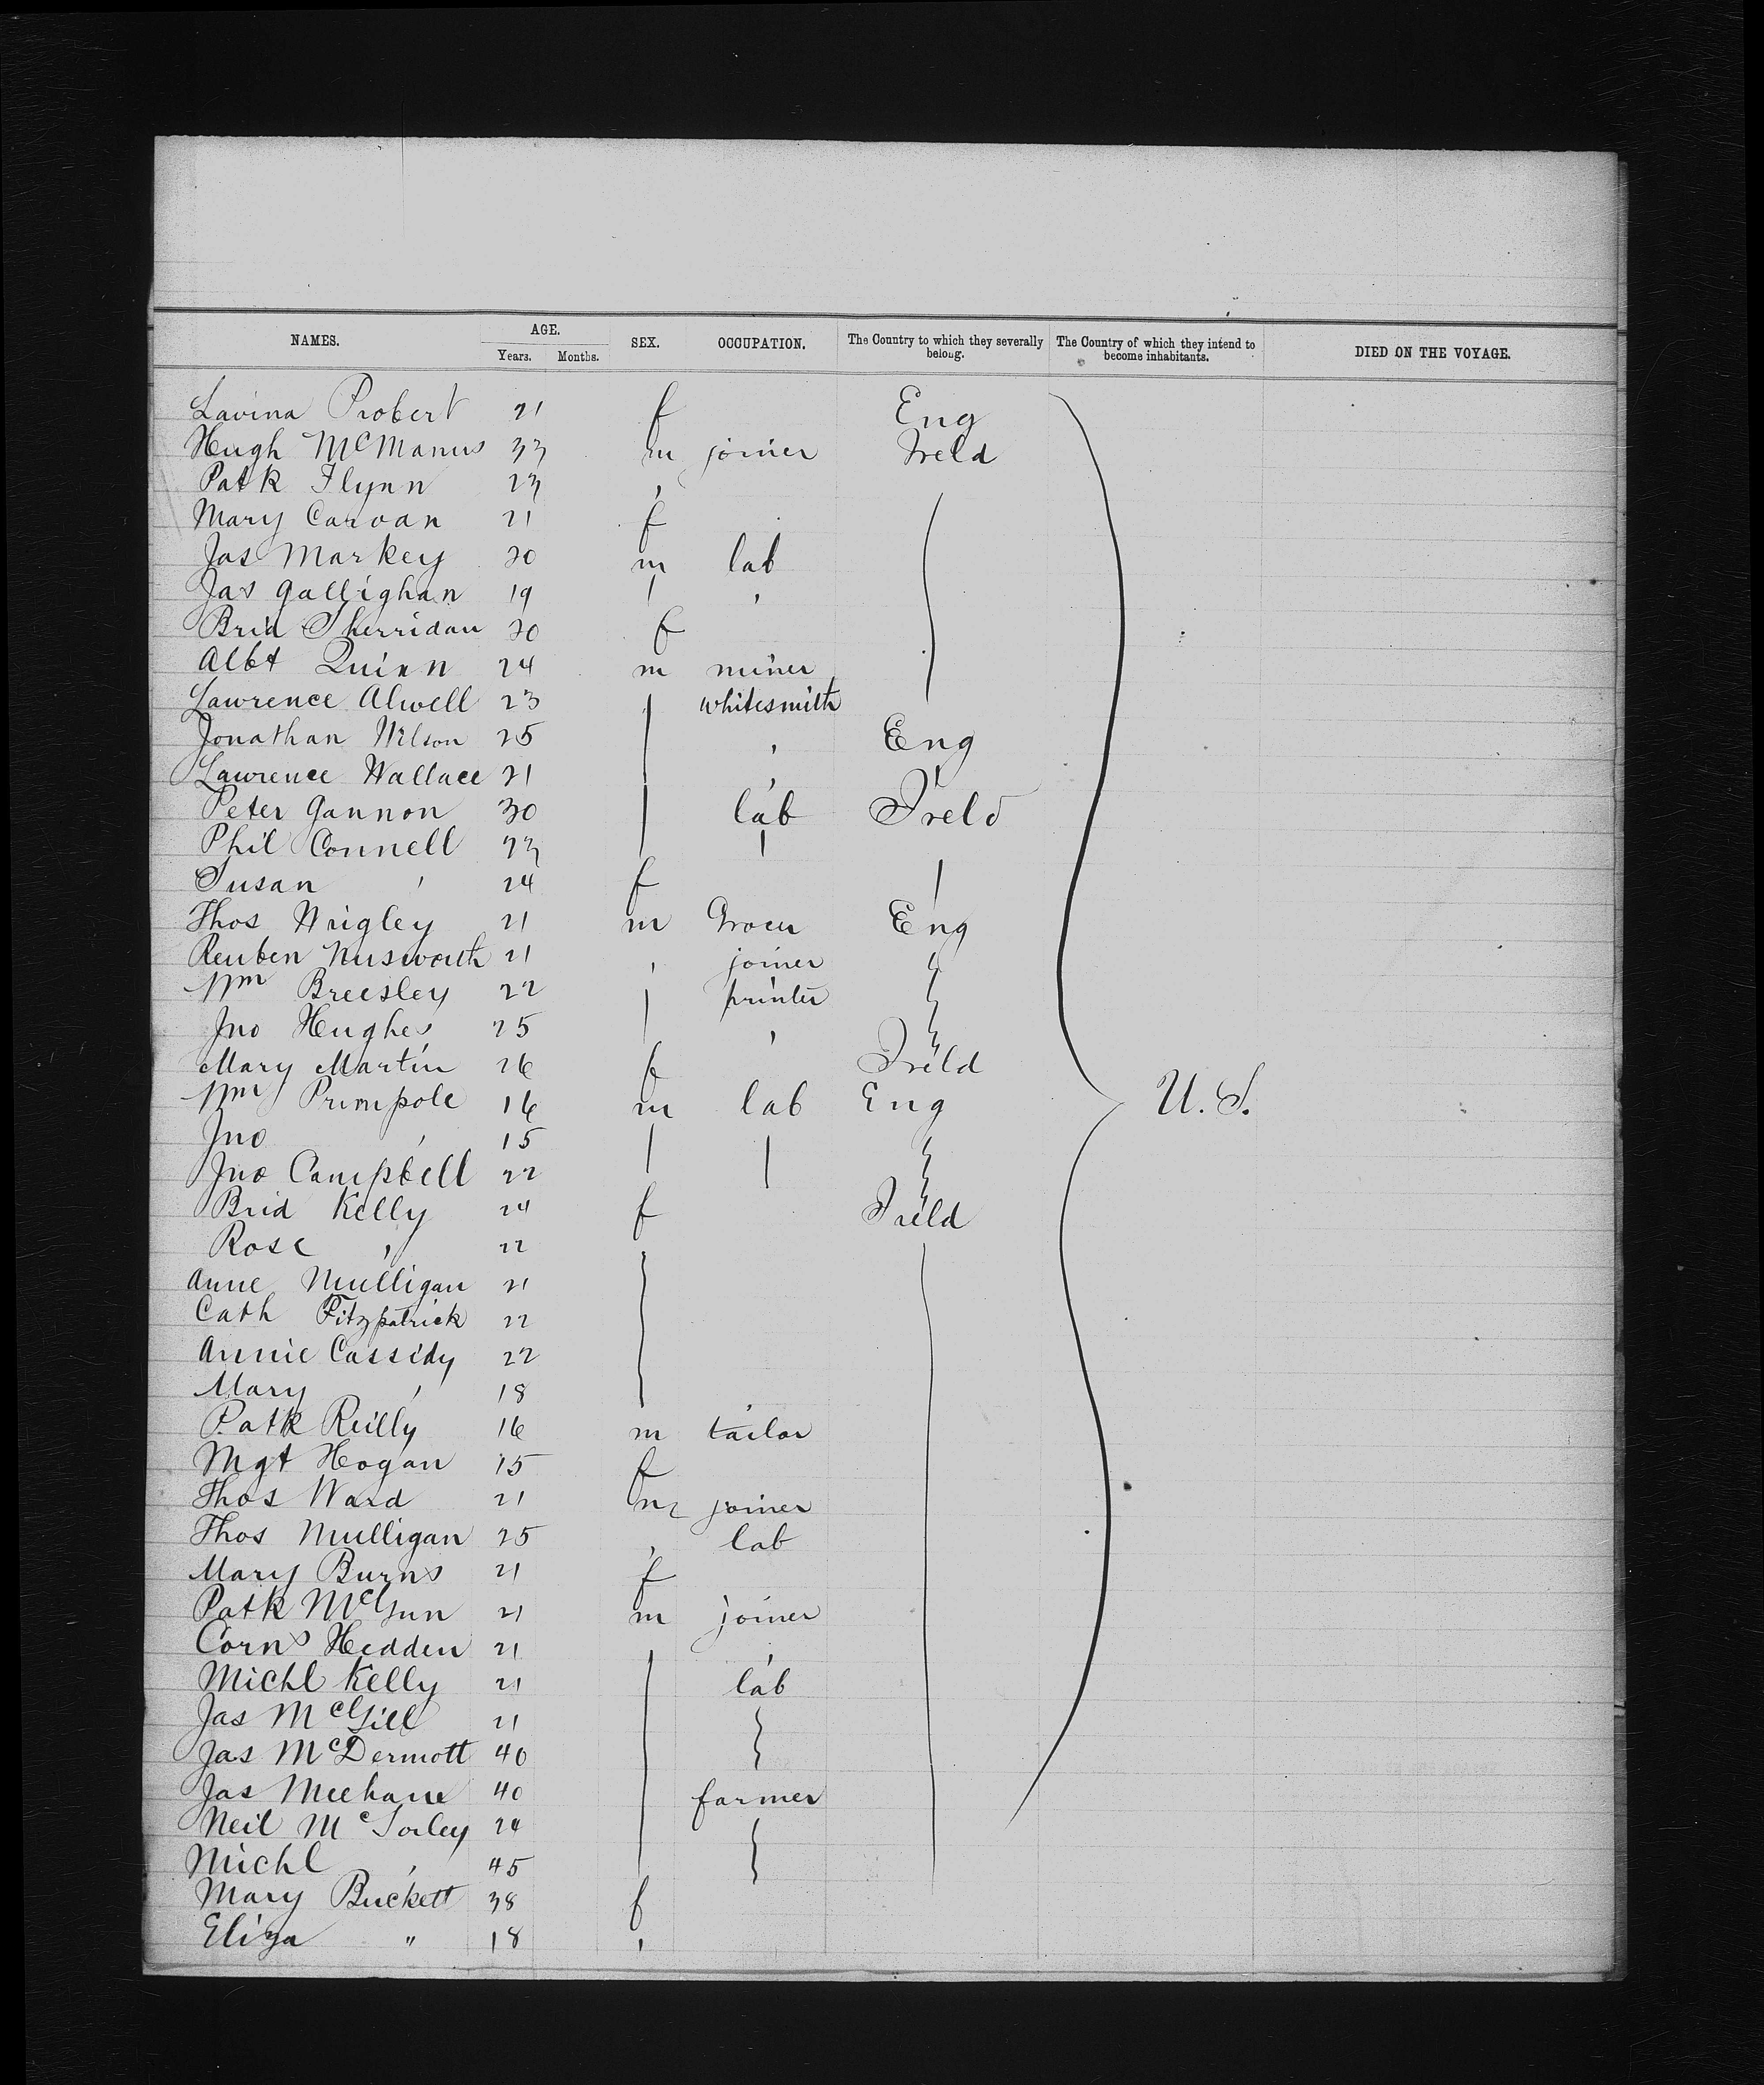 NAMES. AGE. Years. Months. SEX. OCCUPATION. The Country to which they severally belong. The Country of which they intend to become inhabitants. DIED ON THE VOYAGE.
Lavina Probert 21 f Eng
Hugh McManus 33 m joiner Ireld
Patk Flynn 23 '
Mary Carvan 21 f
Jas Markey 30 m lab
Jas Gallighan 19 ' '
Brid Sherridan 30 f
Albt Quinn 24 m miner
Lawrence Alwell 23 whitesmith
Jonathan Wilson 25 ' Eng
Lawrence Wallace 21 ' '
Peter Gannon 30 lab Ireld
Phil Connell 23 '
Susan ' 24 f
Thos Wrigley 21 m Grocer Eng
Reuben 21 ' joiner
Wm Breesley 22 printer
Jno Hughes 25 '
Mary Martin 26 f Ireld
Wm Primpole 16 m lab Eng U.S.
Jno ' 15
Jno Campbell 22
Brid Kelly 24 f Ireld
Rose ' 22
Anne Mulligan 21
Cath Fitzpatrick 22
Annie Cassidy 22
Mary ' 18
Patk Reilly 16 m tailor
Mgt Hogan 15 f
Thos Ward 21 m joiner
Thos Mulligan 25 ' lab
Mary Burns 21 f
Patk McGun 21 m joiner
Corns Hedden 21 '
Michl Kelly 21 lab
Jas McGill 21
Jas McDermott 40
Jas Meehane 40 farmer
Neil McSorley 24
Michl ' 45
Mary Buckett 38 f
Eliza " 18 '